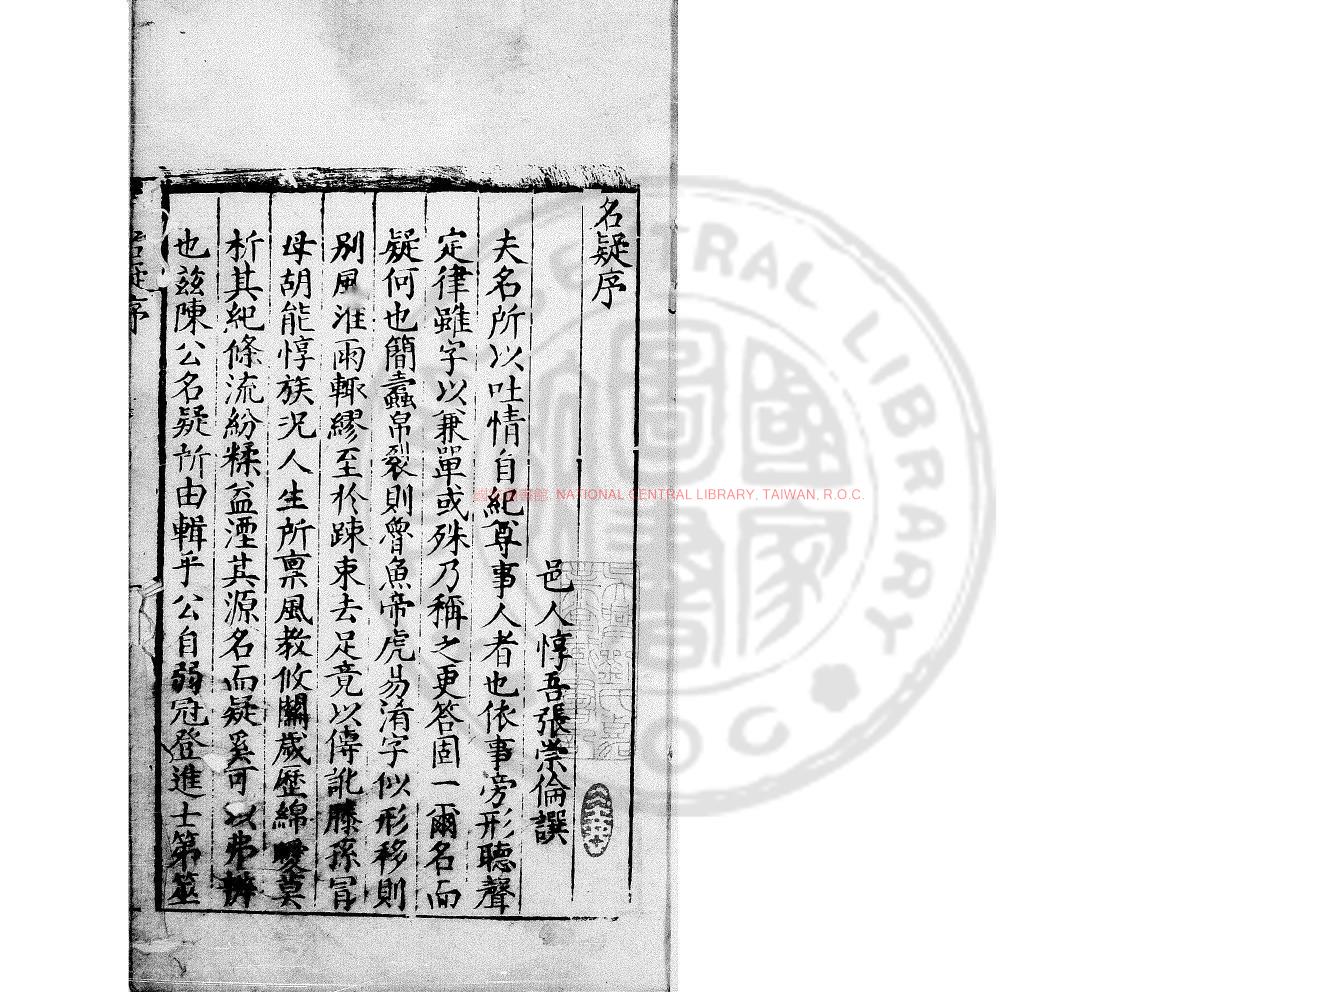 名疑序
邑人惇吾張崇倫譔
夫名所以吐情自紀尊事人者也依事旁形聽聲
定律雖字以兼單或殊乃稱之更答固一爾名而
疑何也簡蠹帛裂則魯魚帝虎易淆字似形移則
別風淮雨輙繆至於踈束去足竟以傳訛滕孫冐
母胡能惇族况人生所禀風教攸關歲歷綿曖莫
析其紀條流紛糅益湮其源名而疑奚可以弗辨
也茲陳公名疑所由輯乎公自弱冠登進士第筮
名疑序
國家圖書館 NATIONAL CENTRAL LIBRARY, TAIWAN, R.O.C.
CENTRAL LIBRARY
國家圖書